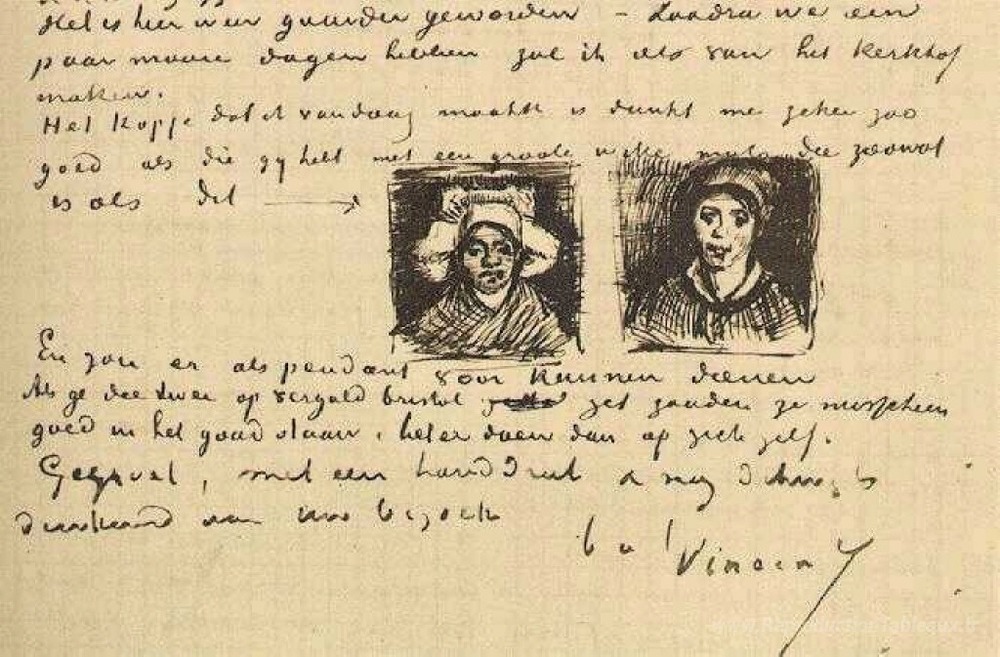 Het is hier weer guurder geworden – Zoodra we een
paar mooie dagen hebben zal ik iets van het kerkhof
maken.
Het kopje dat ik vandaag maakte is dunkt me zeker zoo
goed als die gy hebt met een groote witte muts die zoowat
is als dit
En zou er als pendant voor kunnen dienen
Als ge die twee op verguld bristol zet zouden ze misschien
goed in het goud staan, beter doen dan op zich zelf.
Gegroet, met een handdruk
dankend voor Uw bezoek
t. à t.
Vincent